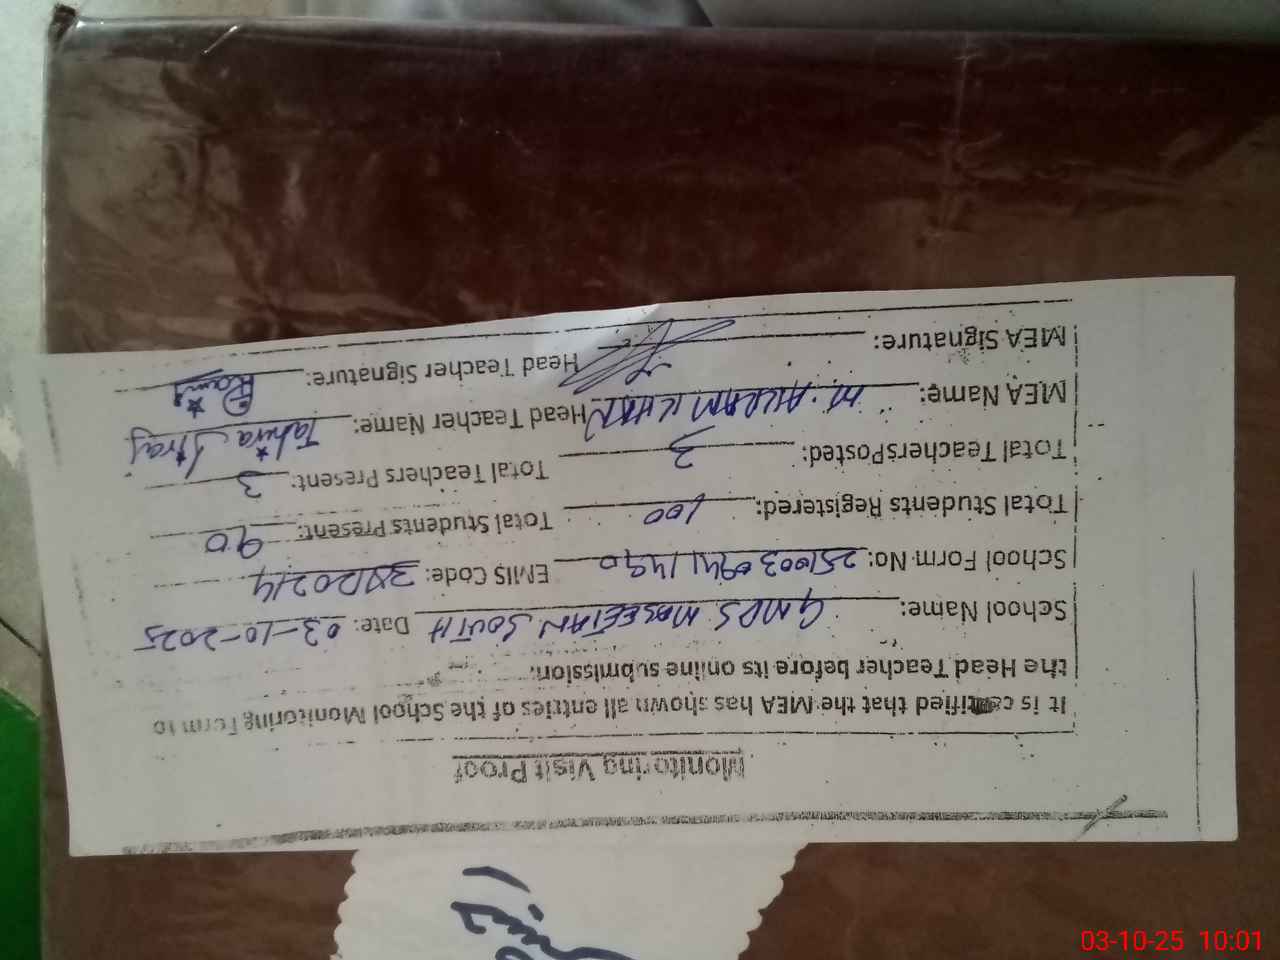 Monitoring Visit Proof
It is certified that the MEA has shown all entries of the School Monitoring Form to
the Head Teacher before its online submission.
School Name: GMPS MASEETAN SOUTH Date: 03-10-2025
School Form No: EMIS Code:
Total Students Registered: 100 Total Students Present: 90
Total TeachersPosted: 3 Total Teachers Present: 3
MEA Name: M. AKRAM KHAN Head Teacher Name: Tahira Siraj
MEA Signature: Head Teacher Signature:
03-10-25 10:01